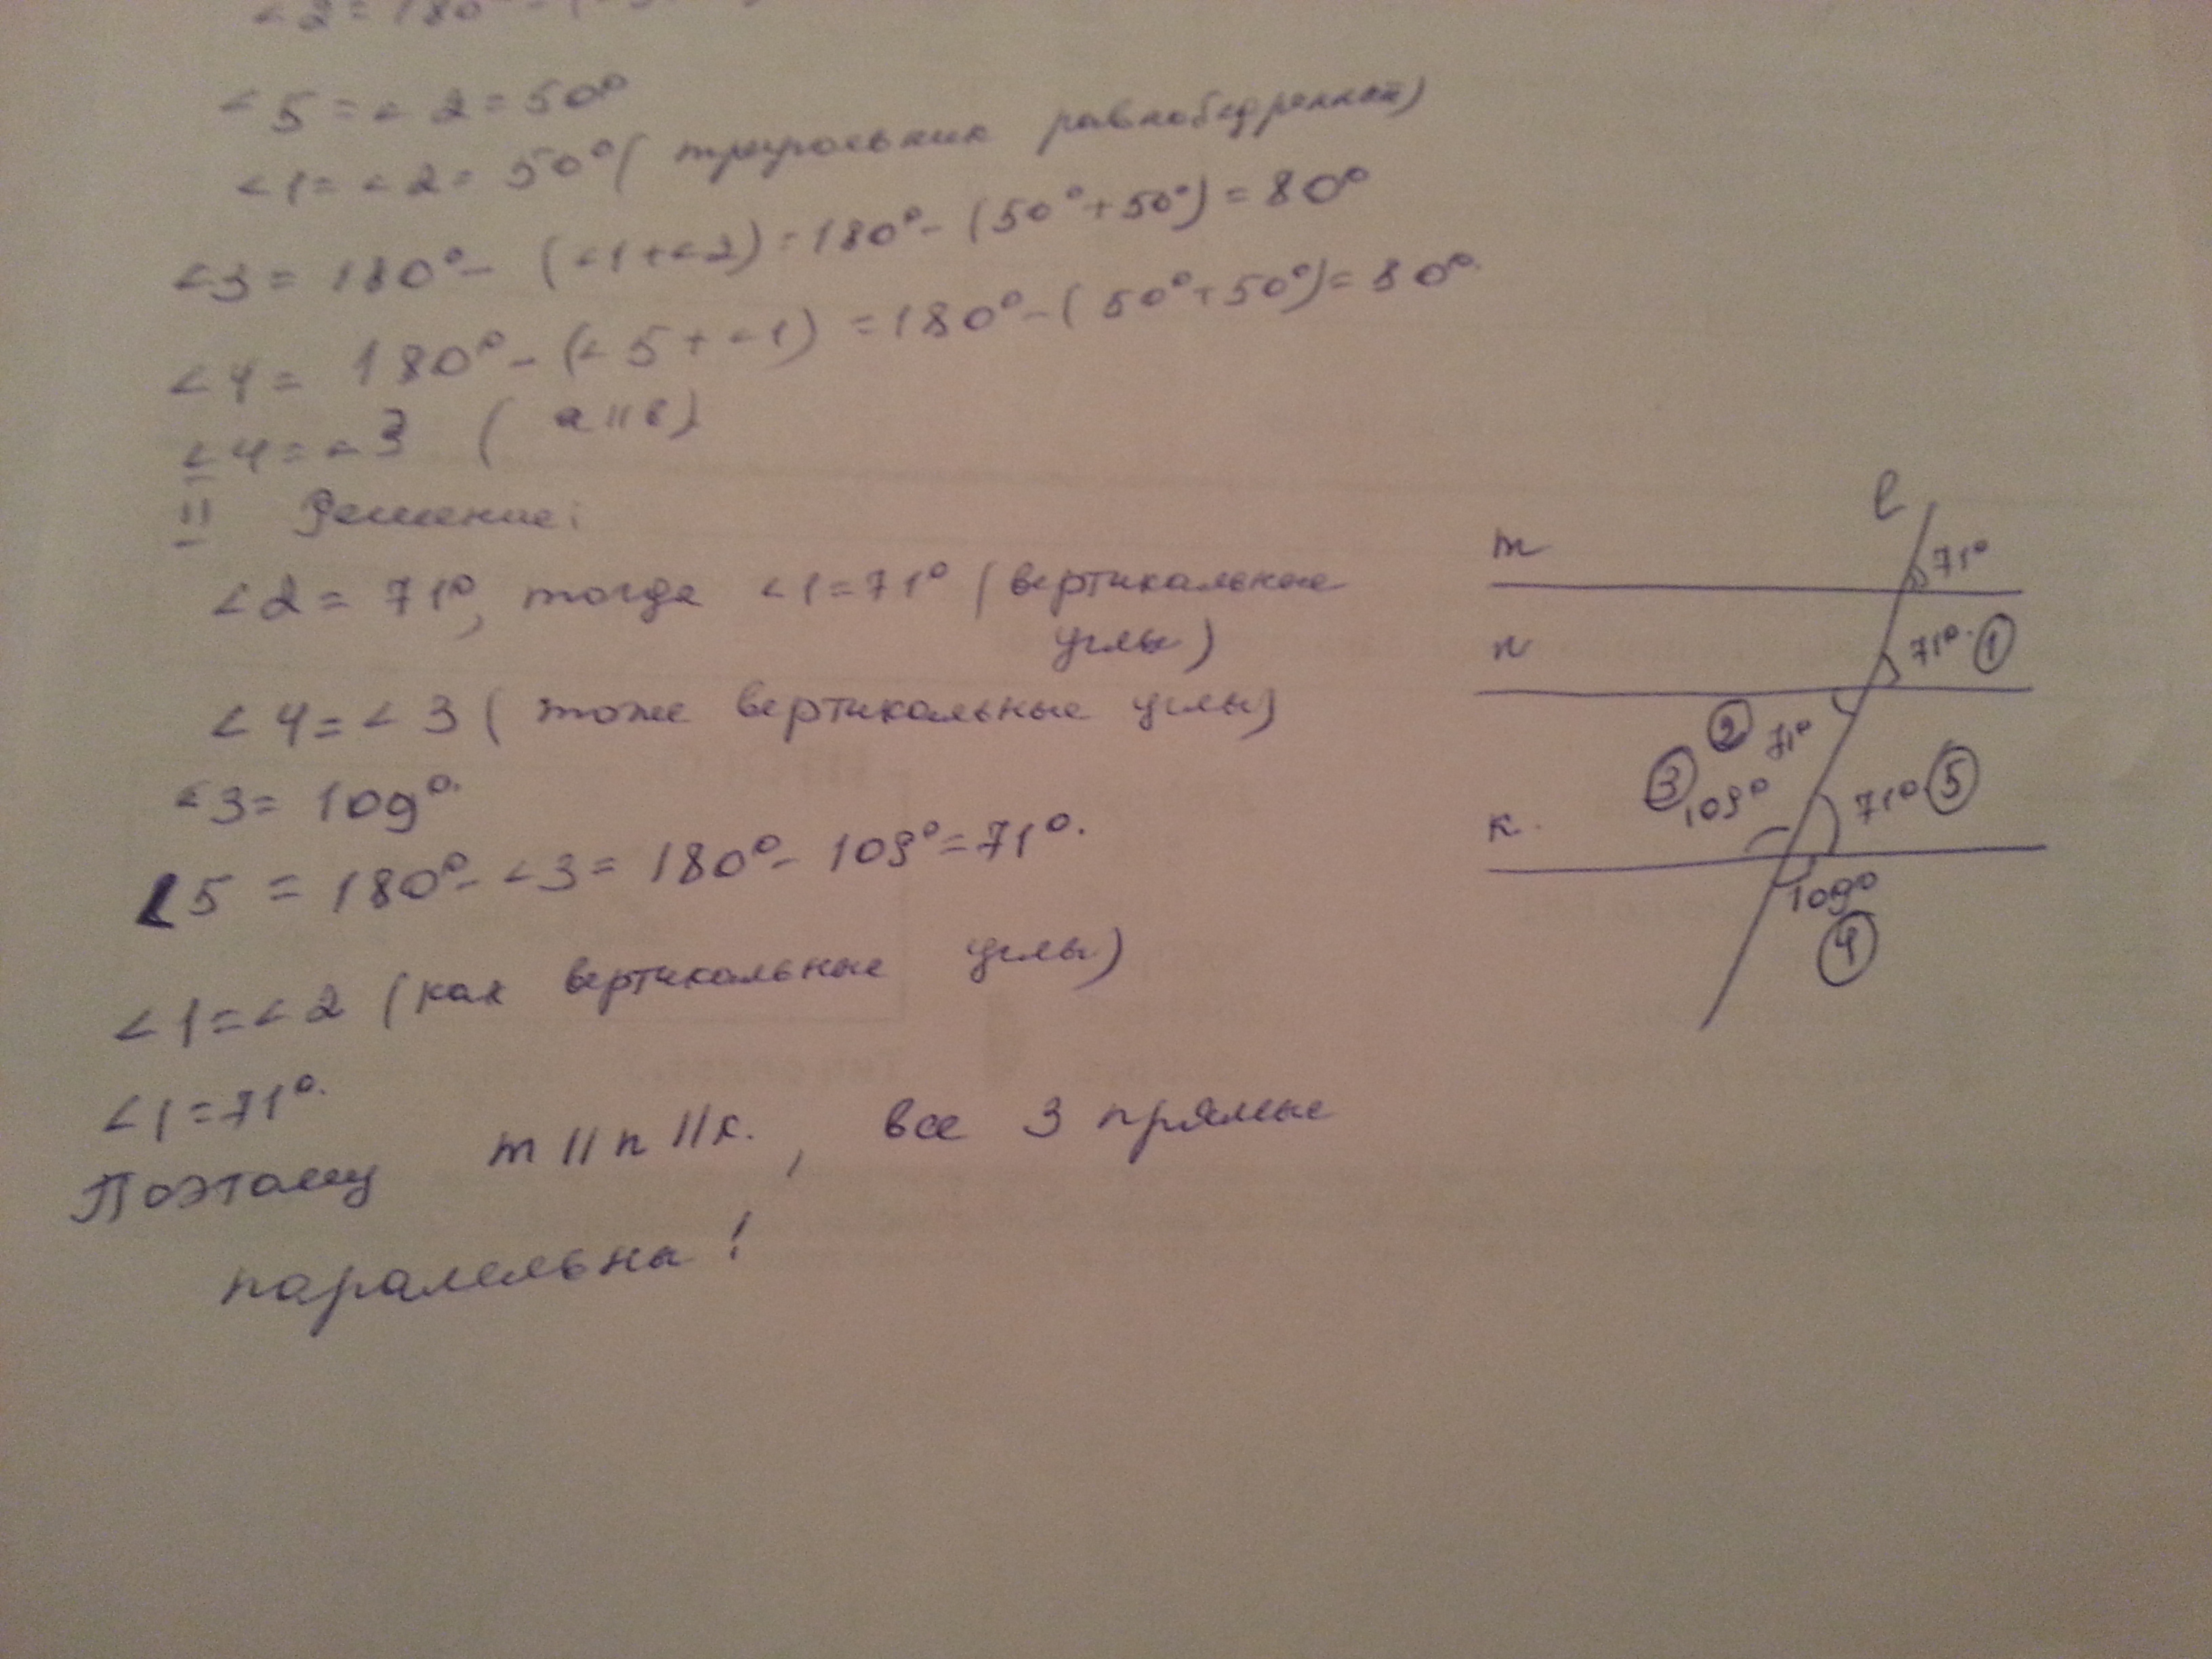 ∠2=180°-(
∠5=∠2=50°
∠1=∠2=50° (треугольник равнобедренный)
∠3=180°-(∠1+∠2)=180°-(50°+50°)=80°
∠4=180°-(∠5+∠1)=180°-(50°+50°)=80°.
∠4=∠3 (a॥в)
II Решение:
∠2=71°, тогда ∠1=71° (вертикальные
углы)
∠4=∠3 (тоже вертикальные углы)
∠3=109°.
∠5=180°-∠3=180°-109°=71°.
∠1=∠2 (как вертикальные углы)
∠1=71°.
Поэтому m||n||к., все 3 прямые
паралельны!
l
m
71°
n
71°. 1
2 71°
3 109°
71°. 5
к.
109°
4